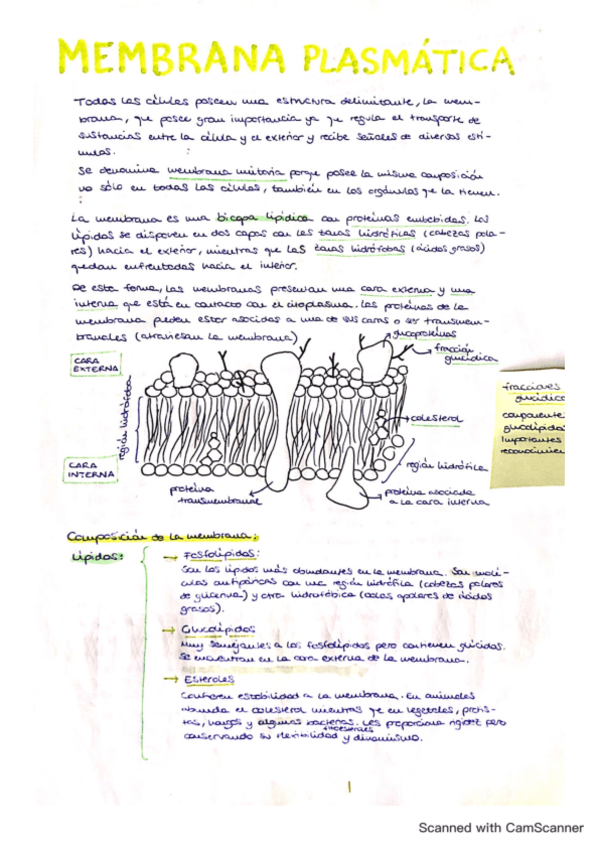 MEMBRANA PLASMÁTICA
Todas las células poseen una estructura delimitante, la mem-
brana, que posee gran importancia ya que regula el transporte de
sustancias entre la célula y el exterior y recibe señales de diversos estí-
mulos.
Se denomina membrana unitaria porque posee la misma composición
no sólo en todas las células, también en los orgánulos que la tienen.
La membrana es una bicapa lipídica con proteínas embebidas. Los
lípidos se disponen en dos capas con las zonas hidrófilas (cabezas pola-
res) hacia el exterior, mientras que las zonas hidrófobas (ácidos grasos)
quedan enfrentadas hacia el interior.
De esta forma, las membranas presentan una cara externa y una
interna que está en contacto con el citoplasma. Las proteínas de la
membrana pueden estar asociadas a una de sus caras o ser transmem-
branales (atraviesan la membrana)
glucoproteínas
fracción
glucídica
CARA
EXTERNA
región hidrófoba
colesterol
CARA
INTERNA
región hidrófila
proteína
transmembranal
proteína asociada
a la cara interna
fracciones
glucídica
componente
glucolípidos
Importantes
reconocimien
Composición de la membrana:
Lípidos:
→ Fosfolípidos:
Son los lípidos más abundantes en la membrana. Son molé-
culas antipáticas con una región hidrófila (cabezas polares
de glicerina) y otra hidrofóbica (colas apolares de ácidos
grasos).
→ Glucolípidos
Muy semejantes a los fosfolípidos pero contienen glúcidos.
Se encuentran en la cara externa de la membrana.
→ Esteroles
Confieren estabilidad a la membrana. En animales
abunda el colesterol mientras que en vegetales, protis-
tas, hongos y algunas bacterias. Les proporciona rigidez pero
conservando su flexibilidad y dinamismo.
1
Scanned with CamScanner